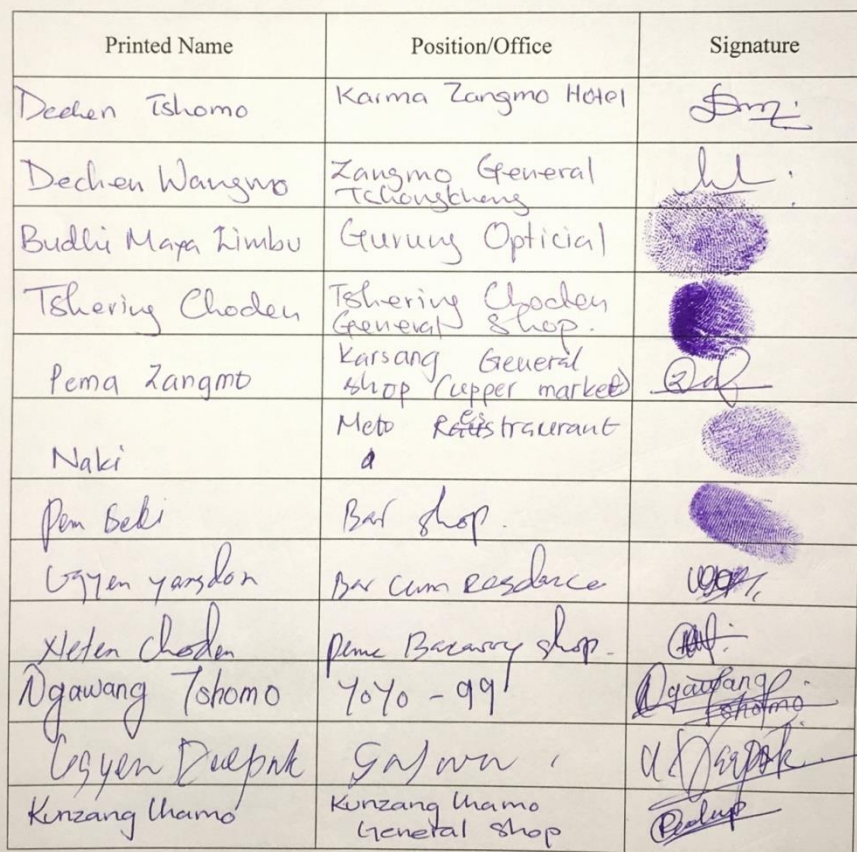 Printed Name Position/Office Signature
Dechen Tshomo Karma Zangmo Hotel
Dechen Wangmo Zangmo General
Tshongkhang
Budhi Maya Limbu Gurung Opticial
Tshering Choden Tshering Choden
General Shop.
Pema Zangmo Karsang General
shop (upper market)
Naki Meto
Pem Beki Bar shop.
Ugyen yangdon Bar cum
Choden shop.
Ngawang Tshomo YOYO - 99 Ngawang
Tshomo
Ugyen Deepak
Kunzang Lhamo Kunzang Lhamo
General Shop